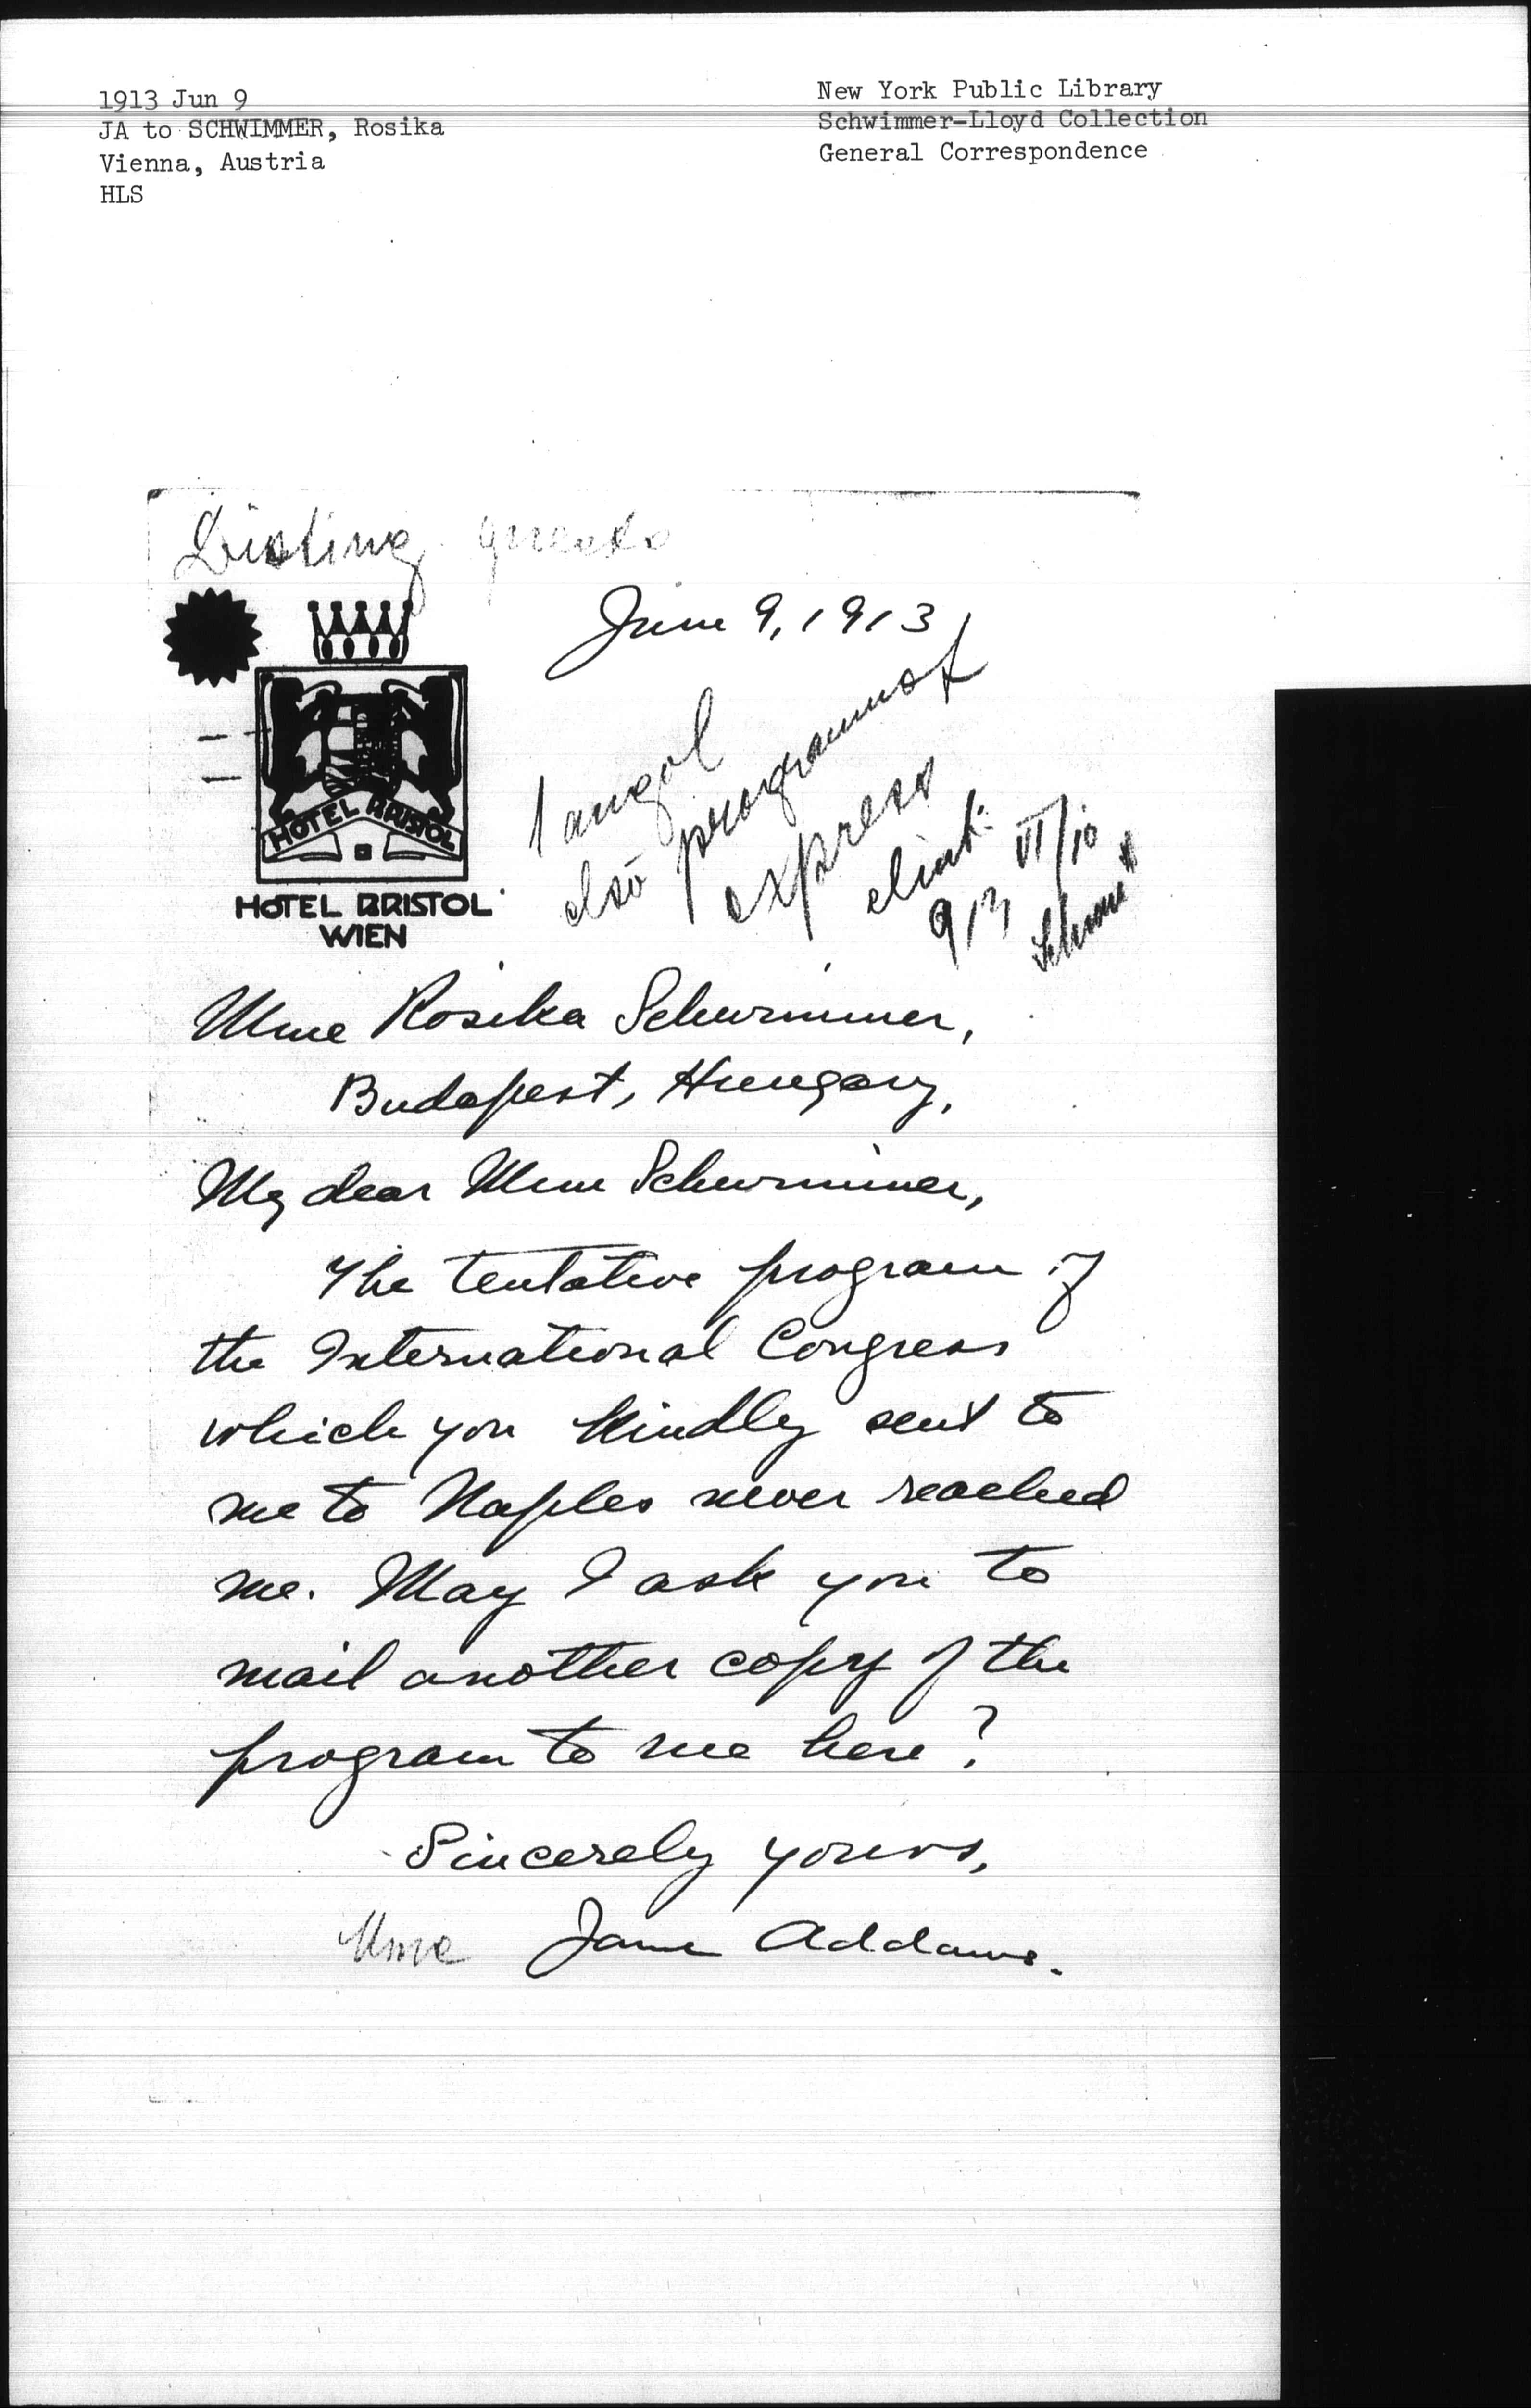 1913 Jun 9
JA to SCHWIMMER, Rosika
Vienna, Austria
HLS
New York Public Library
Schwimmer-Lloyd Collection
General Correspondence
Disting. guests
June 9, 1913
HOTEL BRISTOL
HOTEL BRISTOL
WIEN
1 angol
első programmot
express
elint.
913 VI/10
Mme Rosika Schwimmer,
Budapest, Hungary,
My dear Mme Schwimmer,
The tentative program of
the International Congress
which you kindly sent to
me to Naples never reached
me. May I ask you to
mail another copy of the
program to me here?
Sincerely yours,
Mme Jane Addams.